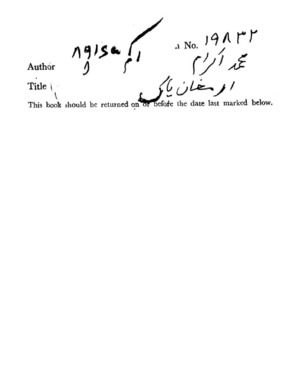 ۸۹۱۵۵ اکم No. ۱۹۸۳۲
Author محمد اکرام
Title ارمغان پاک
This book should be returned on or before the date last marked below.